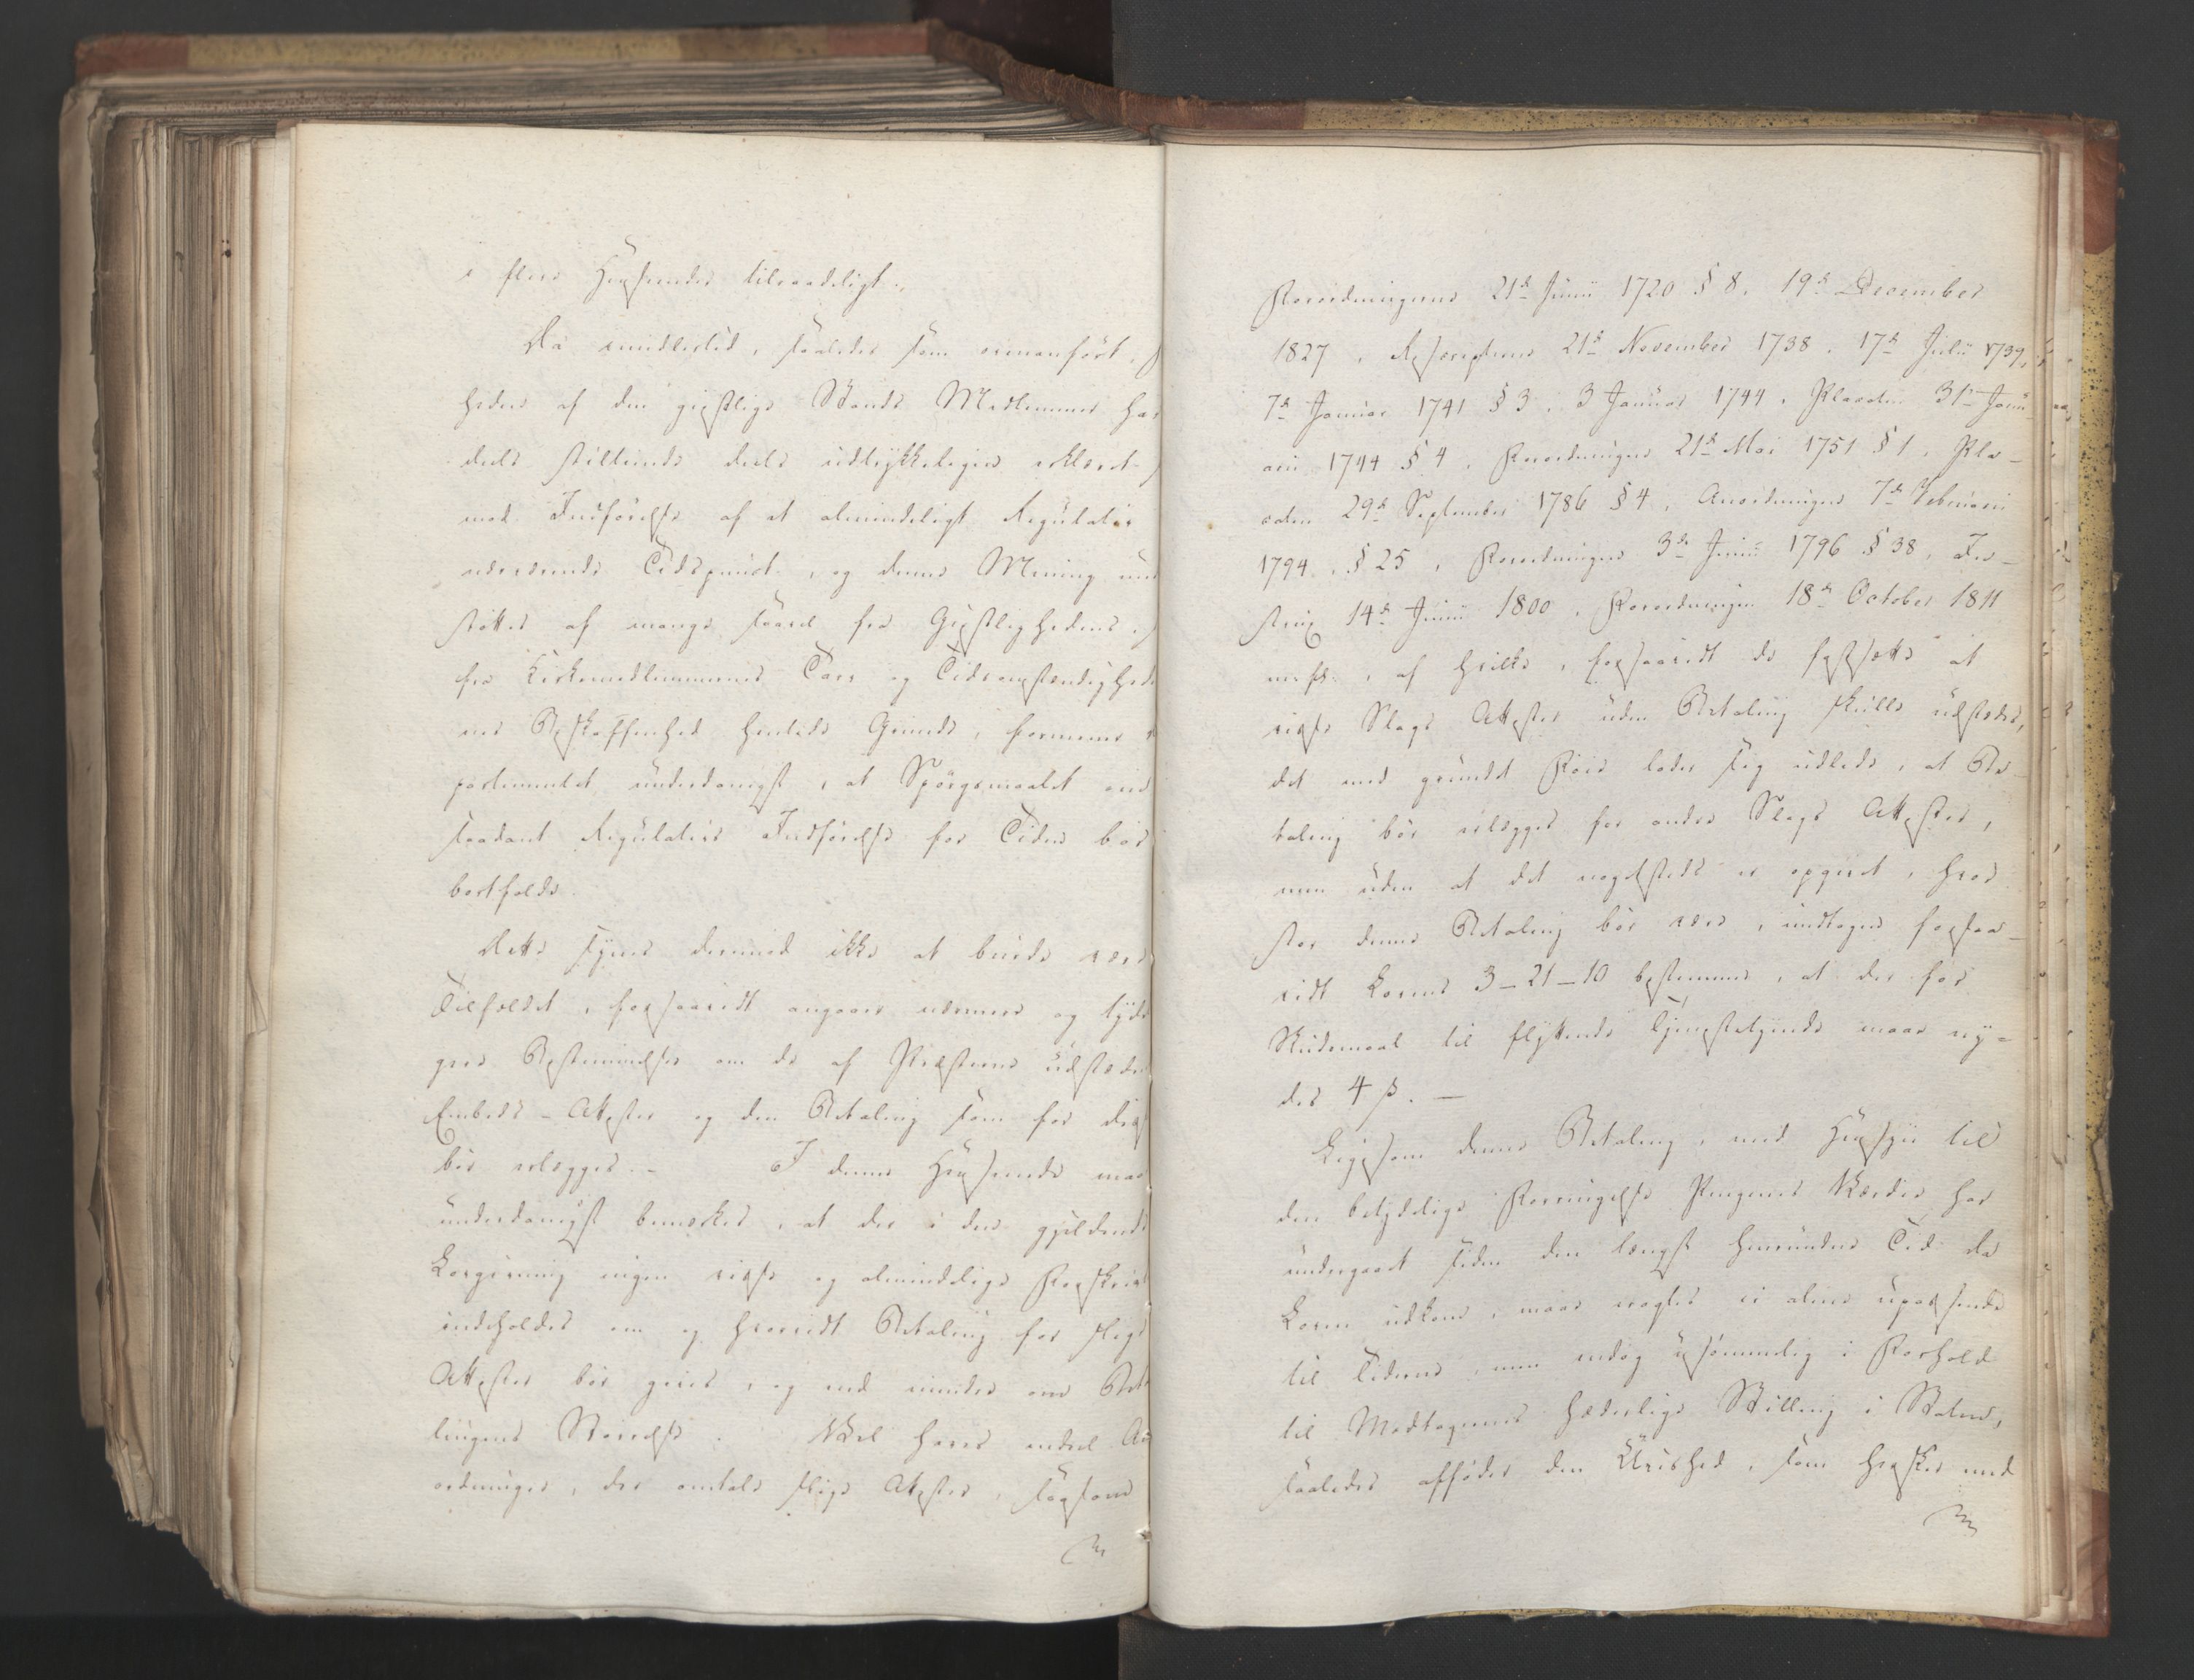 i flere Henseender tilraadeligt.
Da imidlertid, saaledes som ovenanfört,
heden af den geistlige Stands Medlemmer har
deels stiltiende deels udtrykkeligen erklæret
mod Indförelse af et almindeligt Regulativ
nærværende Tidspunct, og denne Mening un
støttes af mange saavel fra Geistlighedens
fra Kirkemedlemmernes Tarv og Tidsomstændighede
nes Beskaffenhed hentede Grunde, formener
partementet underdanigst, at Spörgsmaalet om
saadant Regulativs Indförelse for Tiden bör
bortfalde.
Dette synes derimod ikke at burde være
Tilfældet, forsaavidt angaaer nærmere og tyde
gere Bestemmelser om de af Præsterne udstæden
Embeds-Attester og den Betaling som for disse
bör erlægges. I denne Henseende maa
underdanigst bemærkes, at der i den gjeldende
Lovgivning ingen visse og almindelige Forskrivt
indeholdes om og hvorvidt Betaling for slige
Attester bör gives, og end mindre om Beta
lingens Störrelse. Vel haves endeel An
ordninger, der omtale slige Attester, saasom
Forordningerne 21de Junii 1720 § 8, 19de December
1827, Rescripterne 21de November 1738, 17de Julii 1739,
7de Januar 1741 § 3, 3 Januar 1744, Placaten 31te Janu
arii 1744 § 4, Forordningen 21de Mai 1751 § 1, Pla-
caten 29de September 1786 § 4, Anordningen 7de Februarii
1794, § 25, Forordningen 3de Junii 1796 § 38, In-
strux 14de Junii 1800, Forordningen 18de October 1811
m. fl., af hvilke, forsaavidt de fastsætte at
visse Slags Attester uden Betaling skulle udstedes,
det med grundet Föie lader sig udlede, at Be-
taling bör erlægges for andre Slags Attester,
men uden at det nogetsteds er opgivet, hvor
stor denne Betaling bör være, undtagen forsaa-
vidt Lovens 3-21-10 bestemmer, at der for
Skudsmaal til flyttende Tjenestetyende maae ny-
des 4 ß. —
Ligesom denne Betaling, med Hensyn til
den betydelige Forringelse Pengenes Værdie har
undergaaet siden den længst henrundne Tid da
Loven udkom, maae ansees ei alene upassende
til Tiderne, men endog usömmelig i Forhold
til Modtagernes hæderlige Stilling i Staten,
saaledes afföder den Uvished, som hersker med